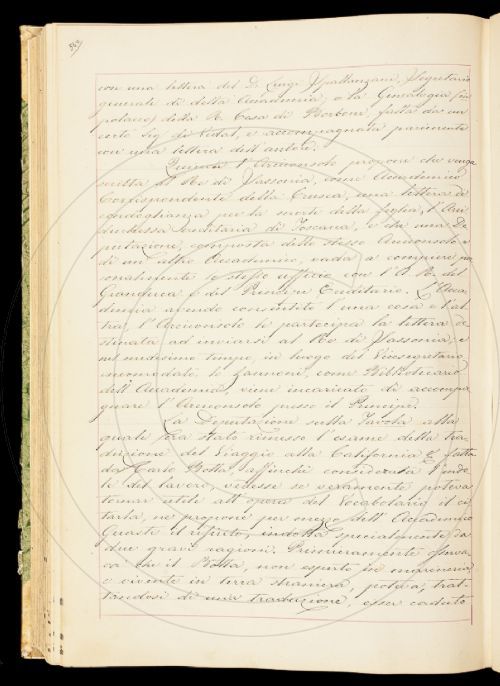 con una lettera del D. Luigi Spallanzani, Segretario
generale di detta Accademia; e la Genealogia (in
polacco) della R. Casa di Borboni, fatta da un
certo Sig. di Vidal, e accompagnata parimente
con una lettera dell'autore.
l'Arciconsolo propone che venga
scritta al Re di Sassonia, come Accademico
Corrispondente della Crusca, una lettera di
condoglianza per la morte della figlia, l'Arci
duchessa ereditaria di Toscana, e che una De
putazione, composta dello stesso Arciconsolo e
di un altro Accademico, vada a compiere per
sonalmente lo stesso ufficio con l'I. R. del
Granduca e del Principe Ereditario. L'Acca
demia avendo consentito l'una cosa e l'al
tra, l'Arciconsolo le partecipa la lettera de
stinata ad inviarsi al Re di Sassonia, e
nel medesimo tempo, in luogo del Vicesegretario
incomodato, lo Zannoni, come Bibliotecario
dell'Accademia, viene incaricato di accompa
gnare l'Arciconsolo presso il Principe.
La Deputazione sulla Tavola alla
quale era stato rimesso l'esame della tra
duzione del Viaggio alla California fatta
da Carlo Botta, affinchè considerata l'indo
le del lavoro, vedesse se veramente poteva
tornar utile all'opera del Vocabolario il ci
tarla, ne propone per mezzo dell'Accademico
il rifiuto, indotta specialmente da
due gravi ragioni. Primieramente osserva
va che il Botta, non esperto in marineria
e vivente in terra straniera, poteva, trat
tandosi di una traduzione, esser caduto